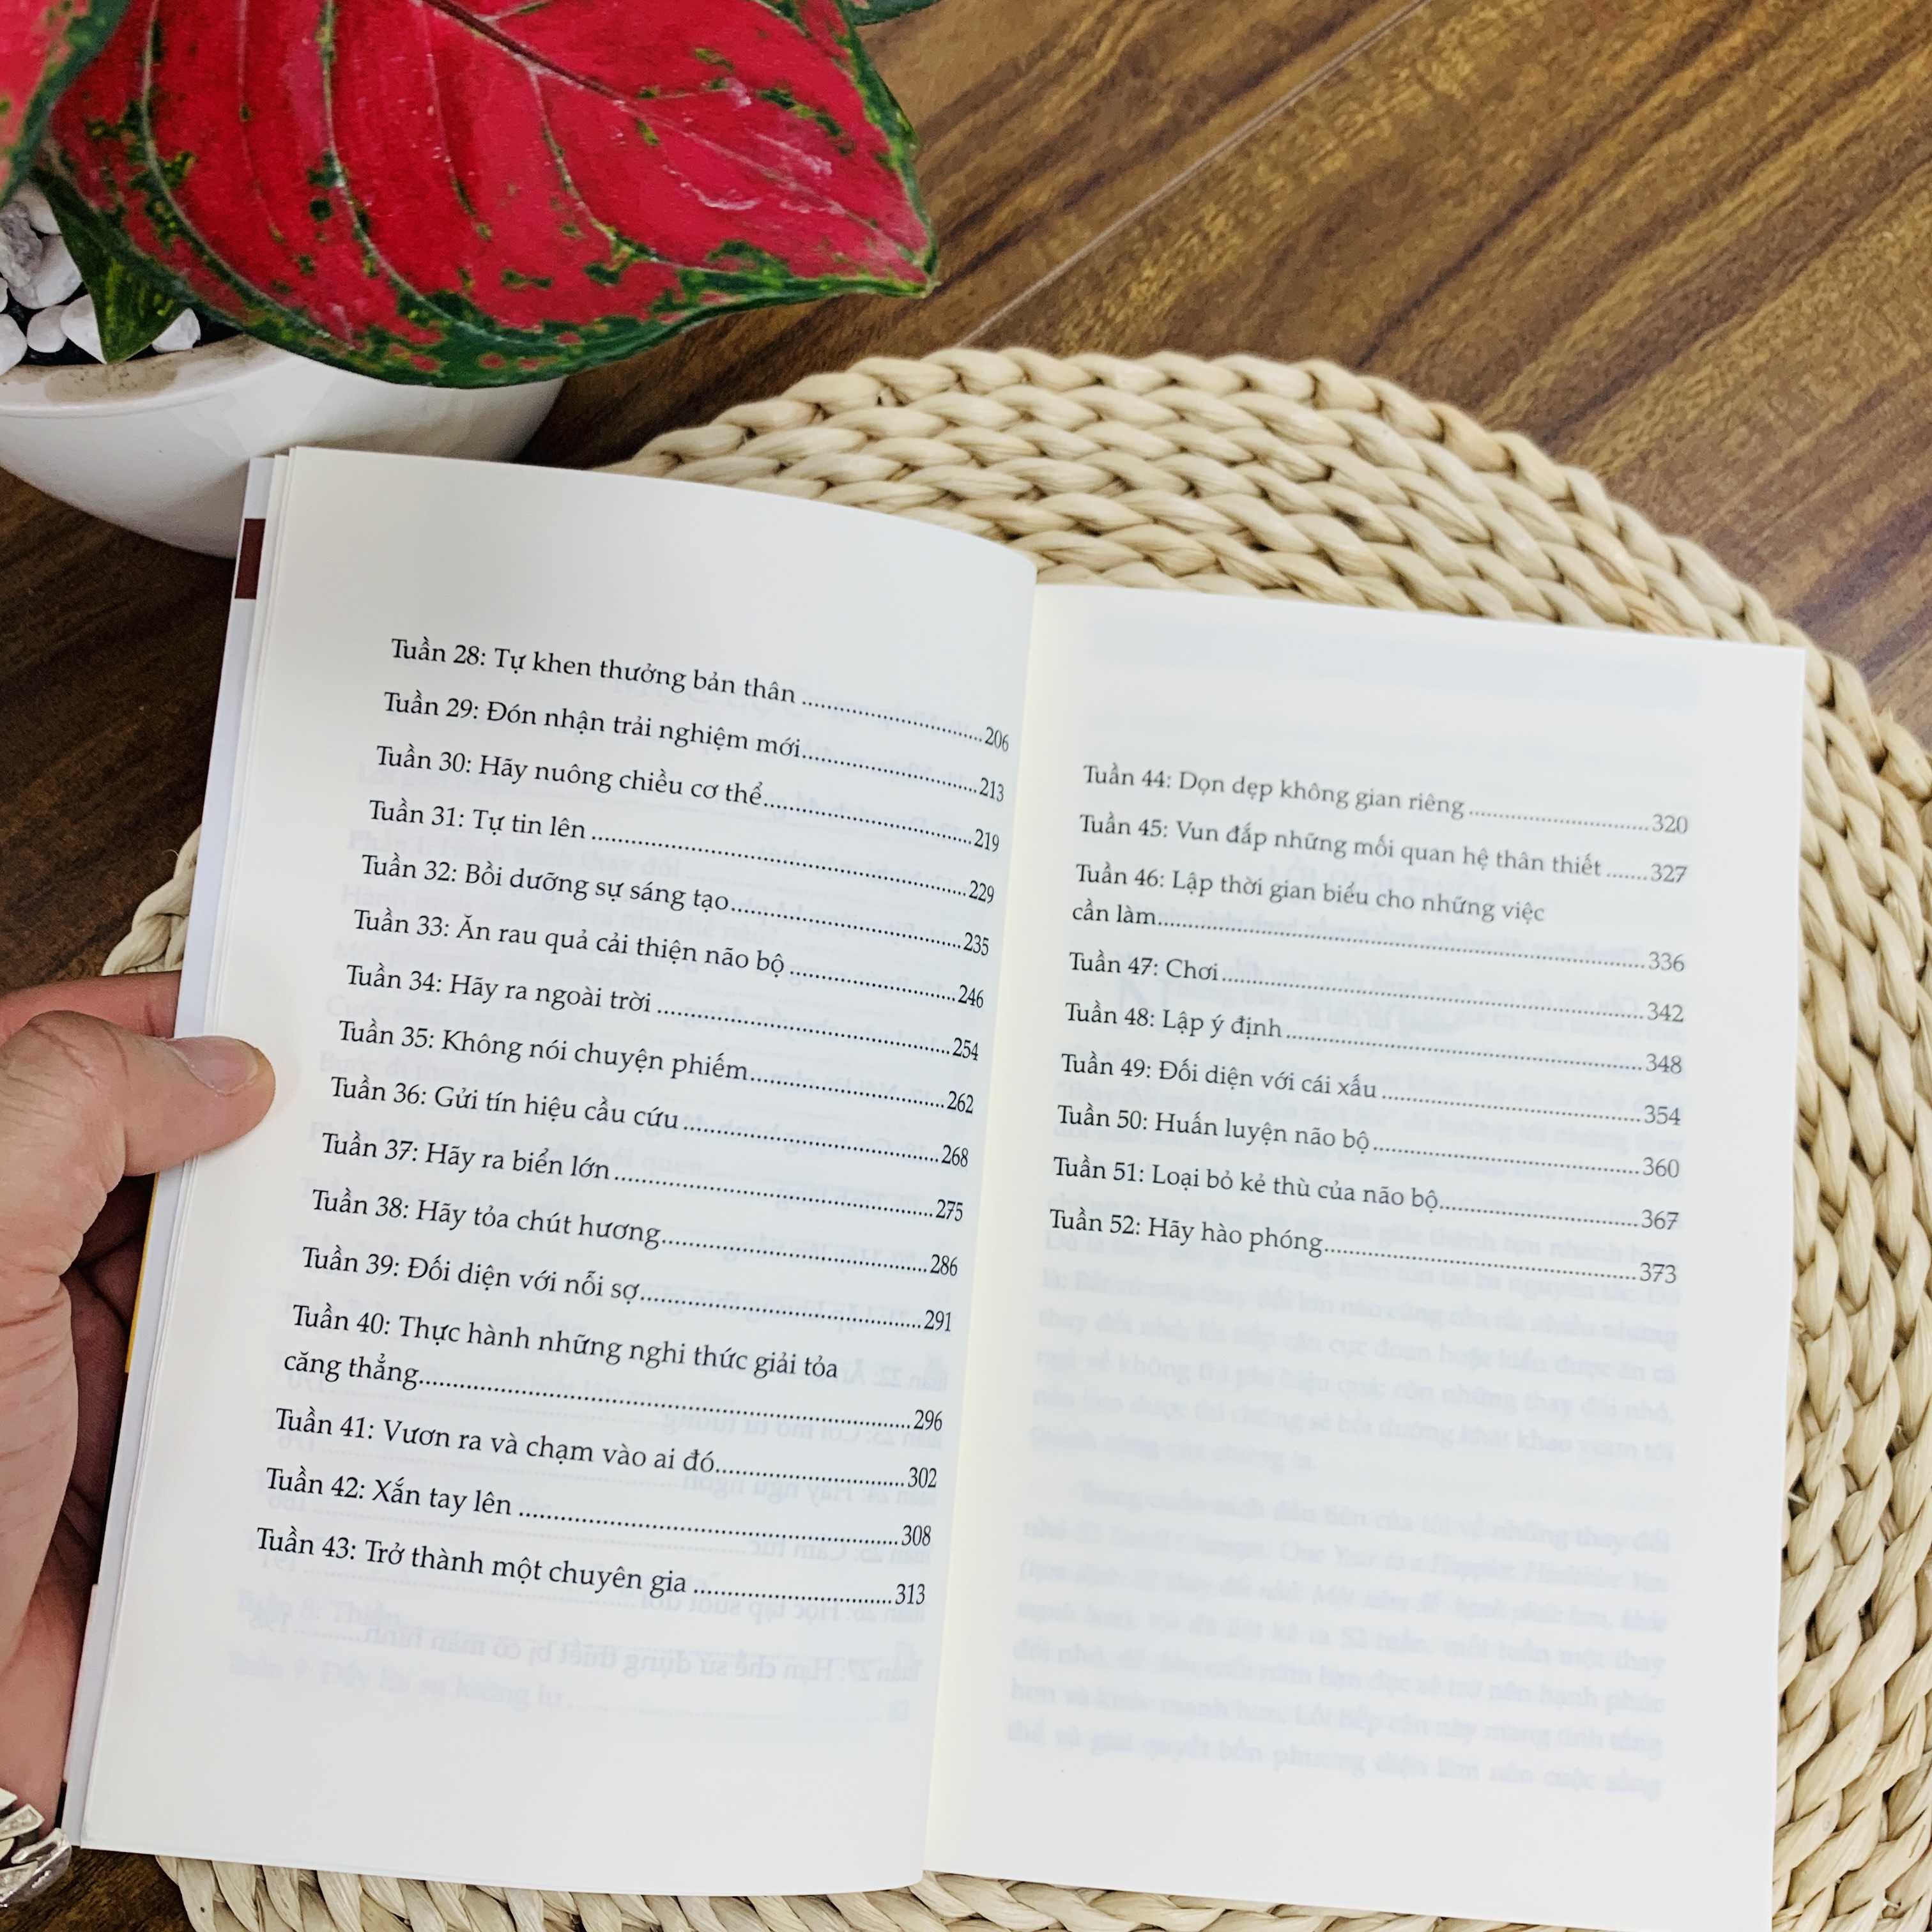 Tuần 28: Tự khen thưởng bản thân ........................206
Tuần 29: Đón nhận trải nghiệm mới........................213
Tuần 30: Hãy nuông chiều cơ thể........................219
Tuần 31: Tự tin lên ........................229
Tuần 32: Bồi dưỡng sự sáng tạo........................235
Tuần 33: Ăn rau quả cải thiện não bộ ........................246
Tuần 34: Hãy ra ngoài trời ........................254
Tuần 35: Không nói chuyện phiếm........................262
Tuần 36: Gửi tín hiệu cầu cứu ........................268
Tuần 37: Hãy ra biển lớn ........................275
Tuần 38: Hãy tỏa chút hương........................286
Tuần 39: Đối diện với nỗi sợ........................291
Tuần 40: Thực hành những nghi thức giải tỏa
căng thẳng........................296
Tuần 41: Vươn ra và chạm vào ai đó........................302
Tuần 42: Xắn tay lên ........................308
Tuần 43: Trở thành một chuyên gia ........................313
Tuần 44: Dọn dẹp không gian riêng ........................320
Tuần 45: Vun đắp những mối quan hệ thân thiết .......327
Tuần 46: Lập thời gian biểu cho những việc
cần làm........................336
Tuần 47: Chơi ........................342
Tuần 48: Lập ý định........................348
Tuần 49: Đối diện với cái xấu ........................354
Tuần 50: Huấn luyện não bộ ........................360
Tuần 51: Loại bỏ kẻ thù của não bộ........................367
Tuần 52: Hãy hào phóng........................373